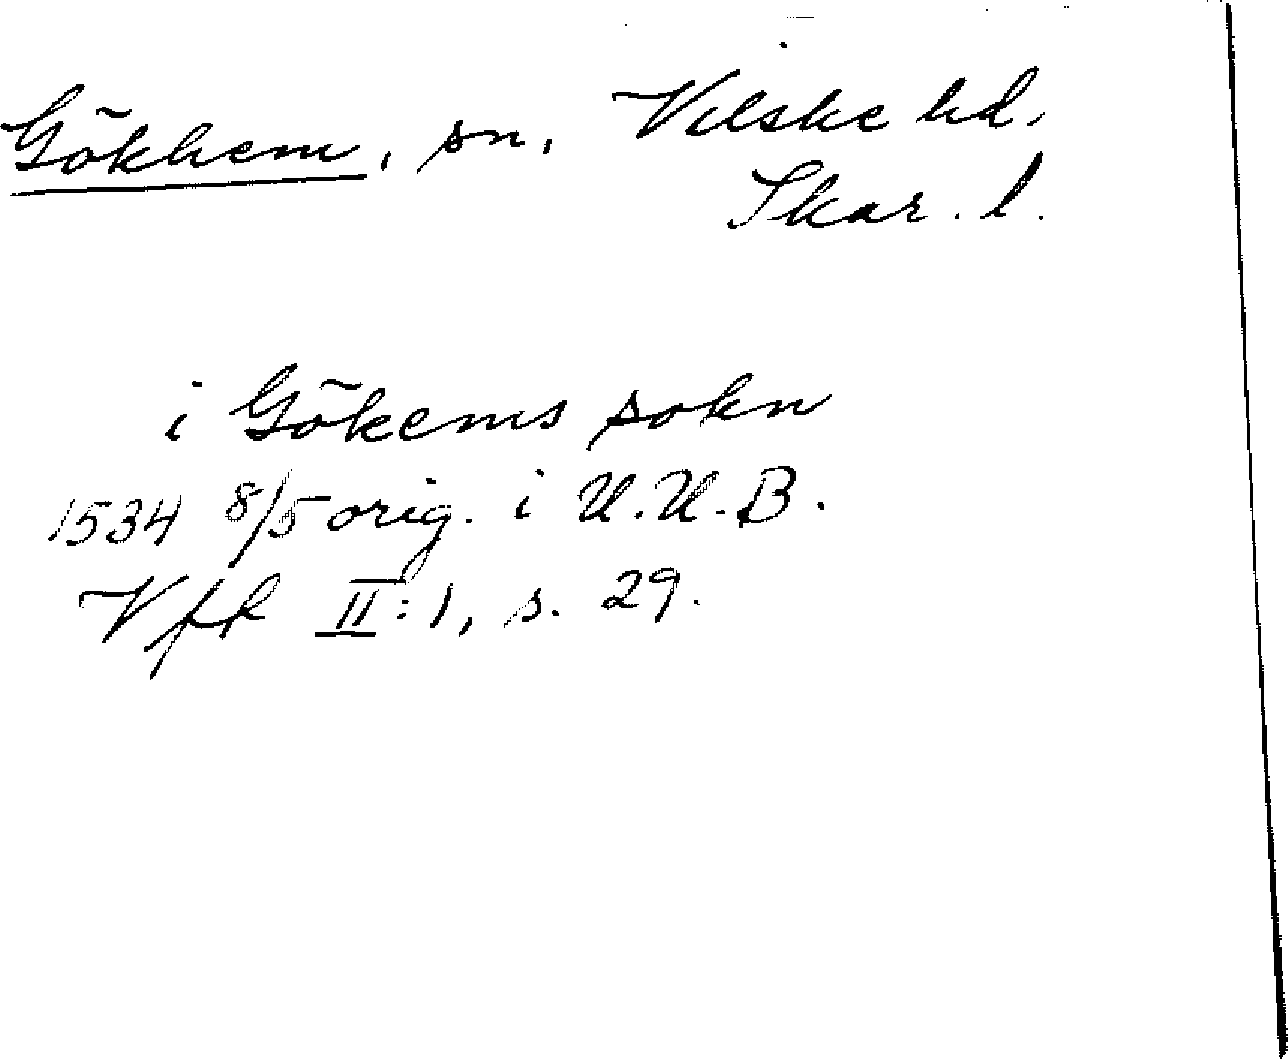 Gökhem, sn, Vilske hd,
Skar. l.
i Gökems sokn
1534 8/5 orig. i U.U.B.
Vfk II:1, s. 29.